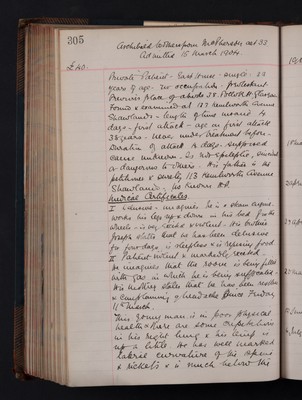 305
Archibald Witherspoon McPherson aet 32
Admitted 15 March 1904
£40.
Private Patient - East House - single - 32
years of age - no occupation - protestant
Previous place of abode
Found & examined at 113 Kenilworth Avenue
Shawlands - length of time insane 4
days - first attack - age on first attack
32 years - never under treatment before -
Duration of attack 4 days - supposed
cause unknown - is not epileptic, suicidal
or dangerous to others - His father is the
petitioner & resides 113 Kenilworth Avenue
Shawlands - no known
Medical Certificates
I Delusions - imagines he is a steam engine
works his legs up & down in his bed for the
wheels - is very excited & violent. His brother
Joseph states that he has been delusive
for four days is sleepless & is refusing food
II Patient violent & markedly
he imagines that the room is being filled
with gas in which he is being suffocated -
His mother states that he has been restless
& complaining of headache since Friday
11th March.
This young man is in poor physical
health & there are some crepitations
in his right lung & his temp is
up a little. He has well marked
lateral curvature of the spine
& rickets & is much below the